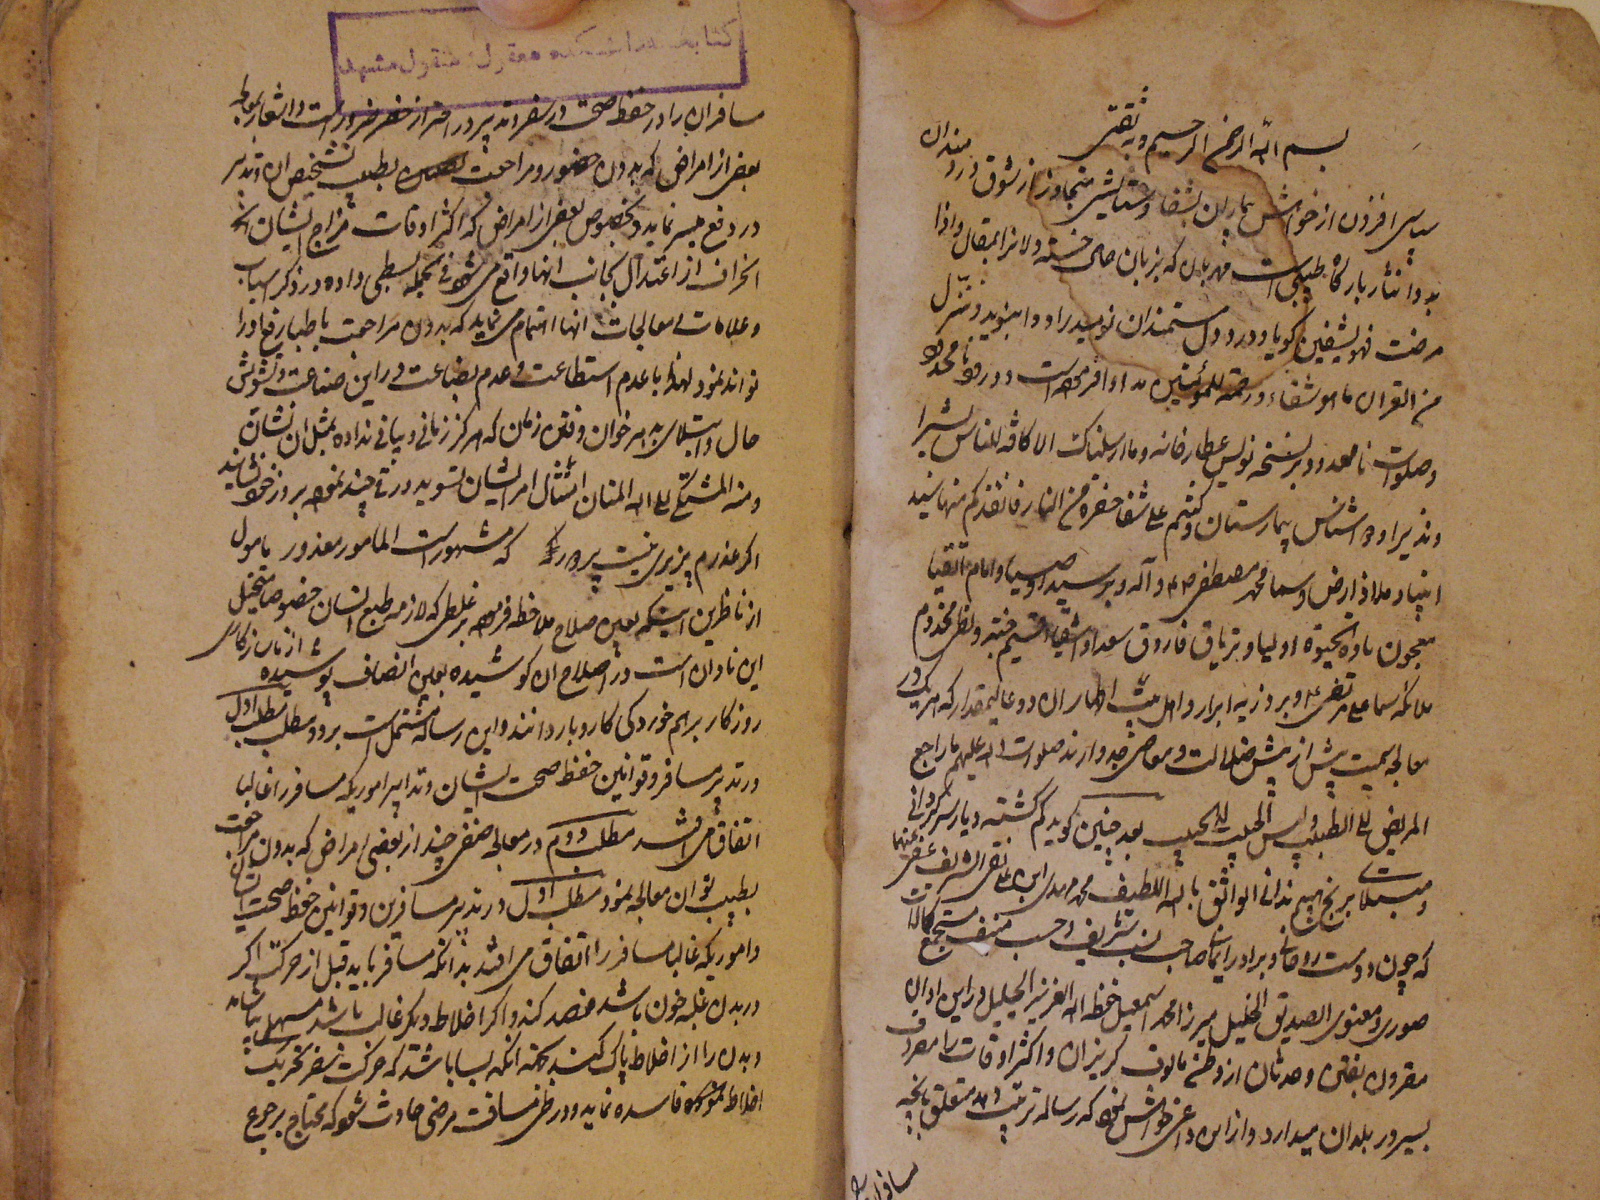 بسم الله الرحمن الرحیم و به ثقتی
سپاسی افزون از خواهش بیماران بشفا و ستایشی متجاوز از شوق دردمندان
بدوا نثار بارگاه طبیبی است مهربان که بزبان حال خسته دلانرا بمقال و اذا
مرضت فهو یشفین گویا و درد دل مستمندان نومید را دوا بنوید و ننزل
من القرآن ما هو شفاء و رحمة للمؤمنین مداوا فرموده است و درود نامحدود
و صلوات نامعدود بر نسخه نویس عطارخانه و ما ارسلناک الا کافة للناس بشیرا
و نذیرا و دواشناس بیمارستان و کنتم علی شفا حفرة من النار فانقذکم منها سید
انبیا و ملاذ ارض و سما محمد مصطفی ص و آله و بر سید اوصیا و امام اتقیا
معجون مادة الحیوة اولیا و تریاق فاروق سعدا و اشقیا قسیم جنة و لظی مخدوم
ملائکه سما علی مرتضی ع و بر ذریه ابرار و اهل بیت اطهار آن دو عالیمقدار که هر یک در
معالجه سمیت نیش ضلالت و معاصی ید دارند صلوات الله علیهم ما راجع
المریض الی الطبیب و انس الحبیب الی الحبیب بعد چنین گوید گم گشته دیار سرگردانی
و مبتلای برنج هیچ ندانی الواثق بالله اللطیف محمد مهدی ابن علی نقی الشریف عفی عنهما
که چون دوست روحانی و برادر ایمانی صاحب نسب شریف و حسب منیف مستجمع کمالات
صوری و معنوی الصدیق الخلیل میرزا محمد اسمعیل حفظه الله العزیز الجلیل در این اوان
مقرون بفتن و حدثان از وطن مالوف گریزان و اکثر اوقات را مصروف
بسیر در بلدان میدارد و از این داعی خواهش نمود که رساله ترتیب دهد متعلق بآنچه
مسافران را
کتابخانه دانشکده معقول و منقول مشهد
مسافران را در حفظ صحت در سفر و تدبیر در احتراز از خطر ضرور است و اشعار بمعالجه
بعضی از امراض که بدون حضور و مراجعت بطبیب تشخیص آن و تدبیر
در دفع میسر نماید و بخصوص بعضی از امراض که اکثر اوقات مزاج ایشان را
انحراف از اعتدال بجانب آنها واقع می شود فی الجمله بسطی داده در ذکر اسباب
و علامات و معالجات آنها اهتمام می نماید که بدون مراجعت باطبا رفع آنرا
تواند نمود لهذا با عدم استطاعت و عدم بضاعت در این صناعت و تشویش
حال و ابتلای به هرخوان و فتن زمان که هرگز زمانی و بیانی نداده بمثل آن نشان
و منه المشتکی الی الله المنان امتثال امر ایشان تسوید ورقی چند نموده بروز خود نشانید
اگر عذرم پذیری نیست پروا که مشهور است المامور معذور مامول
از ناظرین اینکه بعین صلاح ملاحظه فرموده بر غلطی که لازمه طبع انسان خصوصا متخیل
این نادان است در اصلاح آن کوشیده بعین انصاف پوشیده از ناسازکاری
روزگار برهم خوردگی کاروبار دانند و این رساله مشتمل است بر دو مطلب مطلب اول
در تدبیر مسافر و قوانین حفظ صحت ایشان و تدابیر اموریکه مسافر را غالبا
اتفاق می افتد مطلب دوم در معالجه صنفی چند از بعضی امراض که بدون مراجعت
بطبیب توان معالجه نمود مطلب اول در تدبیر مسافرین و قوانین حفظ صحت ایشان
و اموریکه غالبا مسافر را اتفاق می افتد بدانکه مسافر باید قبل از حرکت اگر
در بدن غلبه خون باشد فصد کند و اگر اخلاط دیگر غالب باشد مسهلی بیاشامد
و بدن را از اخلاط پاک کند بجهة آنکه بسا باشد که حرکت سفر تحریک
اخلاط فاسده نماید و در طی مسافت مرضی حادث شود که محتاج برجوع